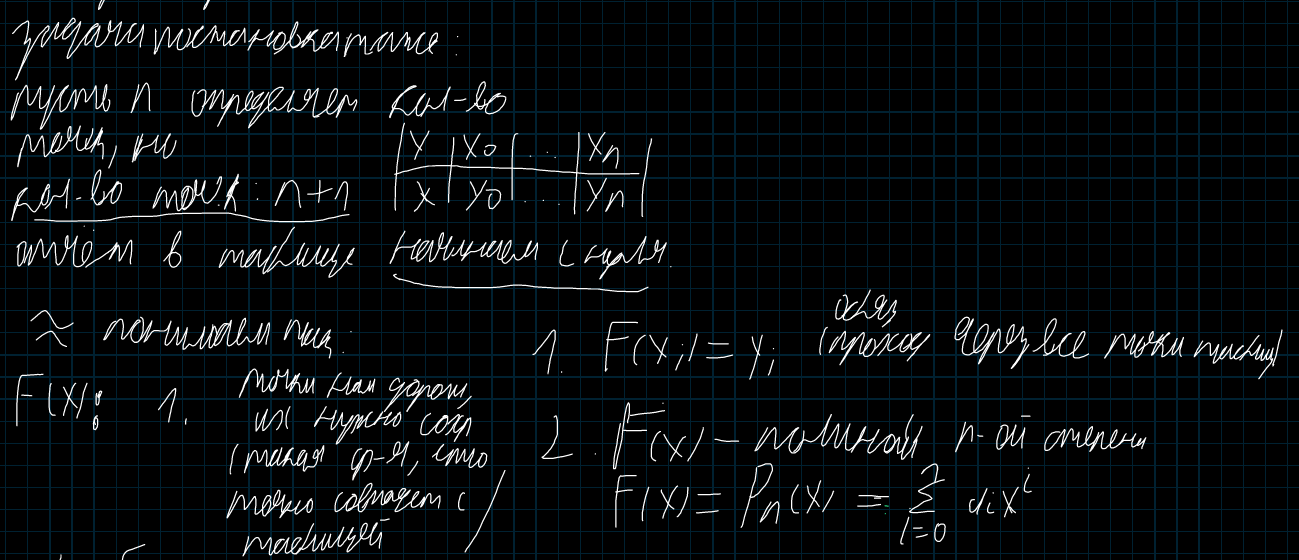 задача постановка та же:
пусть n определяем кол-во
точек, но
кол-во точк: n+n
отчём в таблице начинаем с нуля.
| X | X0 | ... | Xn |
| X | Y0 | ... | Yn |
≈ понимаем так:
F(X): 1. точки нам дороги,
их нужно сохр
(такая ф-я, что
точно совпадет с
таблицей)
1. F(Xi) = Yi (обяз проход через все точки таблиц)
2. F(X) – полином n-ой степени
F(X) = Pn(X) = Σ i=0 diX^i